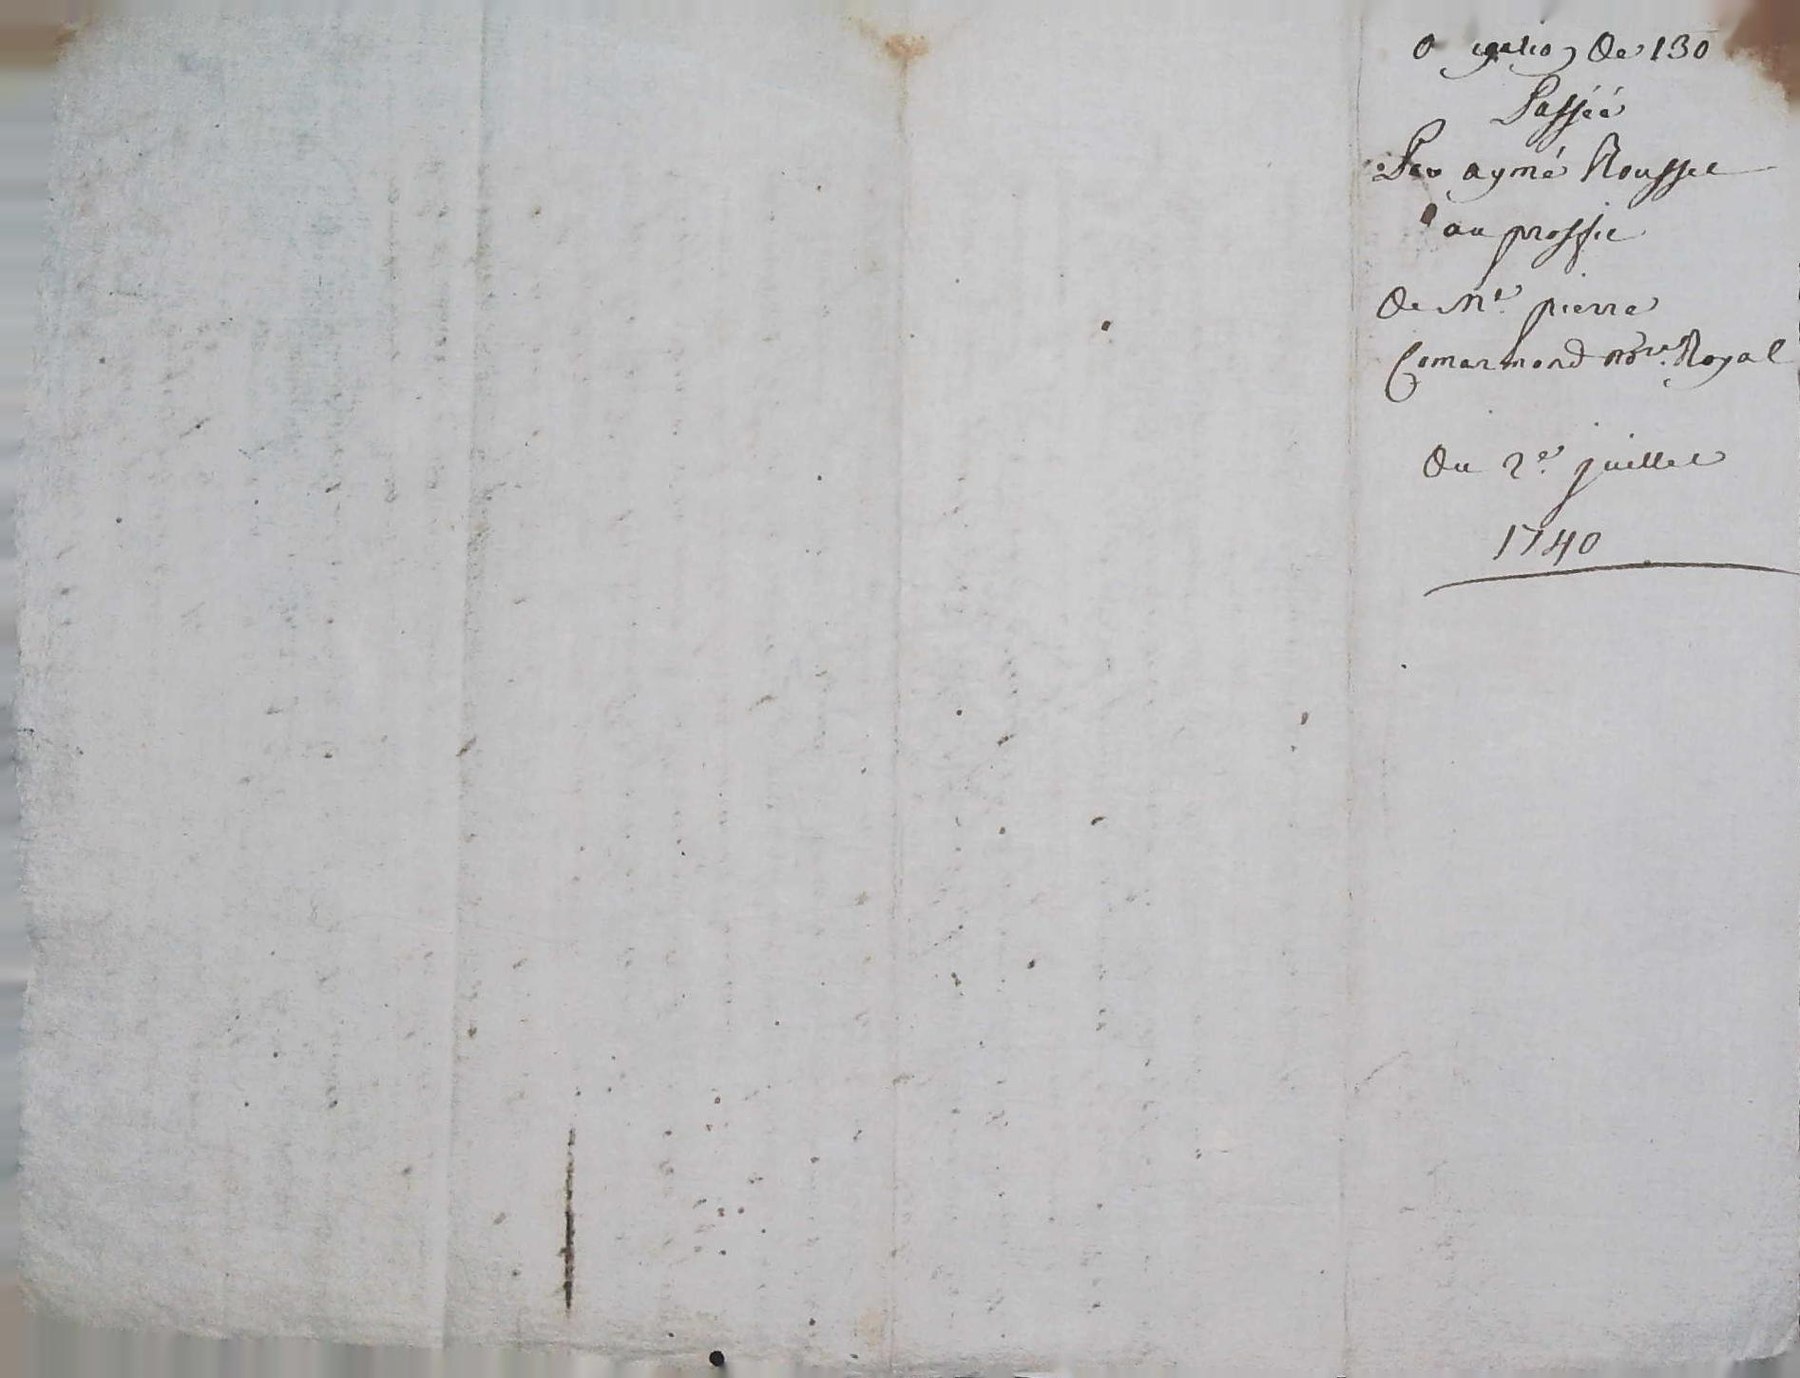 O igation de 130
Passéé
Par aymé Rousset
au proffit
de Me. pierre
Comarmond nore. Royal
du 2e. juillet
1740